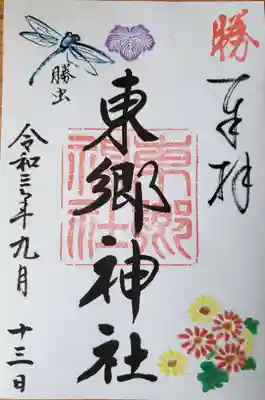 勝
奉拝
東郷神社
東郷神社
勝虫
令和三年九月
十三日